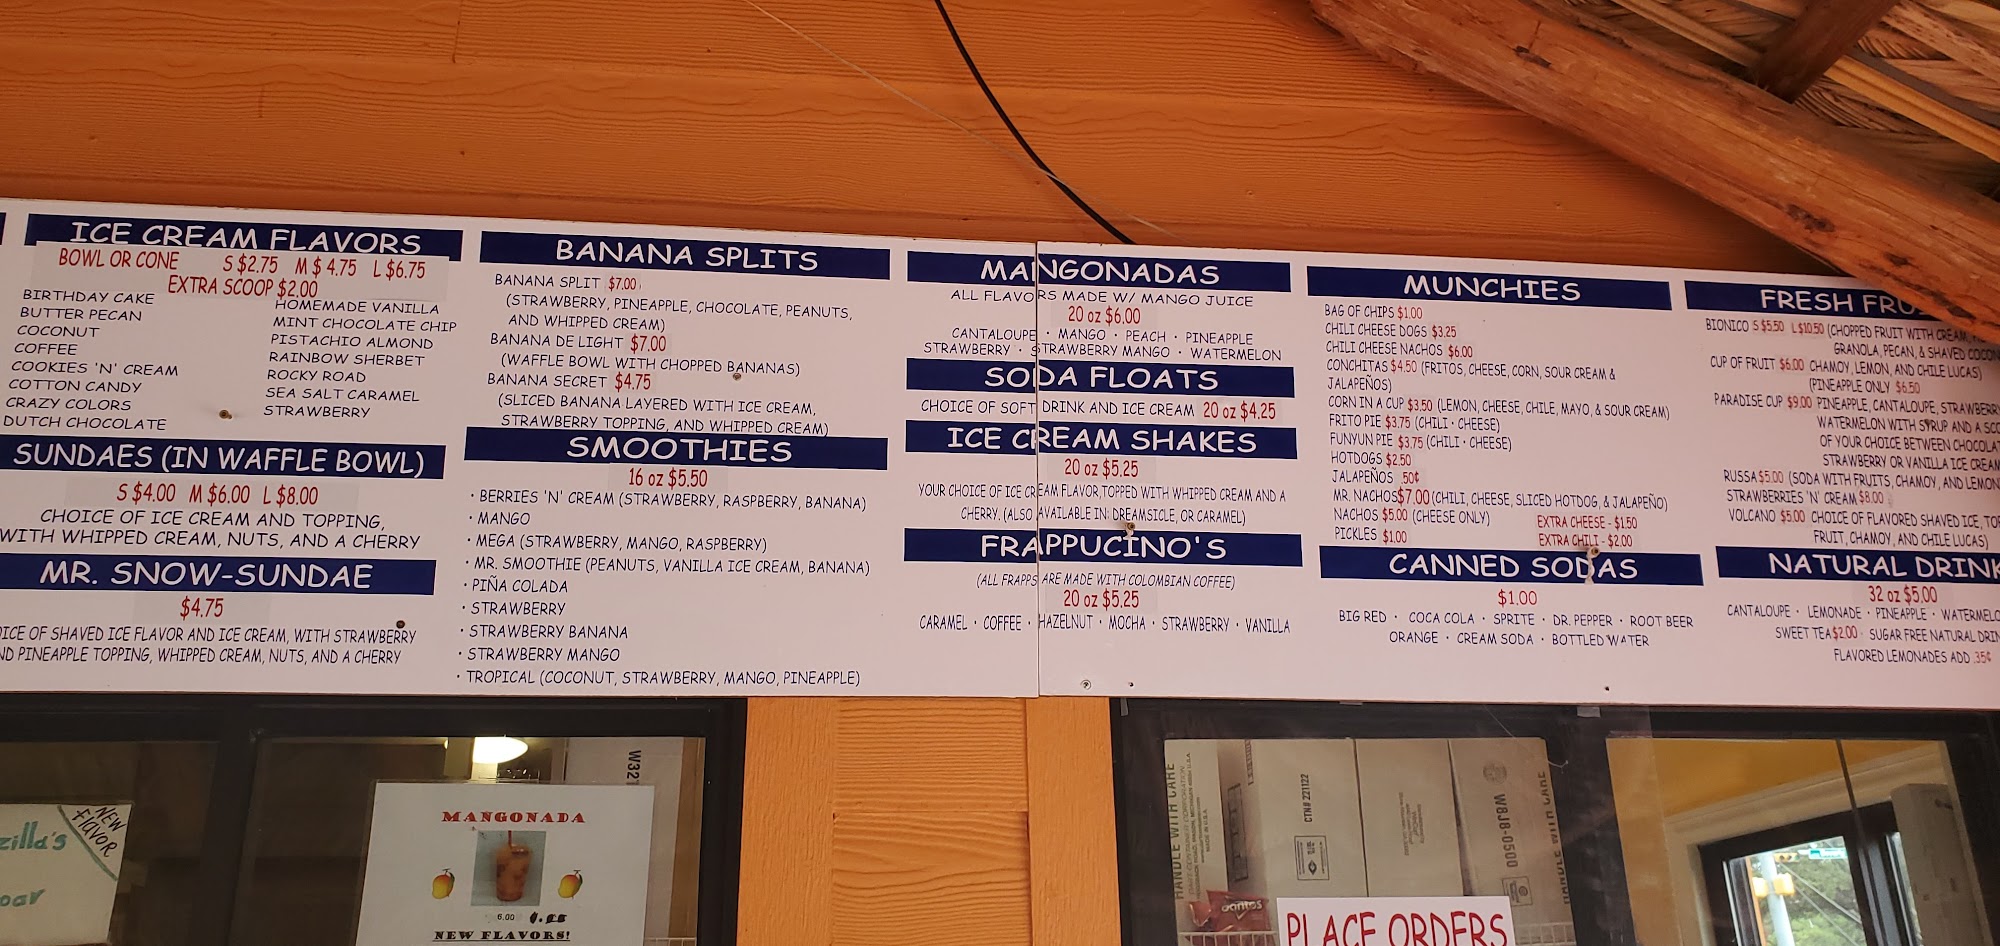 ICE CREAM FLAVORS
BOWL OR CONE S $2.75 M $4.75 L $6.75
EXTRA SCOOP $2.00
BIRTHDAY CAKE
BUTTER PECAN
COCONUT
COFFEE
COOKIES 'N' CREAM
COTTON CANDY
CRAZY COLORS
DUTCH CHOCOLATE
HOMEMADE VANILLA
MINT CHOCOLATE CHIP
PISTACHIO ALMOND
RAINBOW SHERBET
ROCKY ROAD
SEA SALT CARAMEL
STRAWBERRY
SUNDAES (IN WAFFLE BOWL)
S $4.00 M $6.00 L $8.00
CHOICE OF ICE CREAM AND TOPPING,
WITH WHIPPED CREAM, NUTS, AND A CHERRY
MR. SNOW-SUNDAE
$4.75
OF SHAVED ICE FLAVOR AND ICE CREAM, WITH STRAWBERRY
PINEAPPLE TOPPING, WHIPPED CREAM, NUTS, AND A CHERRY
BANANA SPLITS
BANANA SPLIT $7.00
(STRAWBERRY, PINEAPPLE, CHOCOLATE, PEANUTS,
AND WHIPPED CREAM)
BANANA DE LIGHT $7.00
(WAFFLE BOWL WITH CHOPPED BANANAS)
BANANA SECRET $4.75
(SLICED BANANA LAYERED WITH ICE CREAM,
STRAWBERRY TOPPING, AND WHIPPED CREAM)
SMOOTHIES
16 oz $5.50
• BERRIES 'N' CREAM (STRAWBERRY, RASPBERRY, BANANA)
• MANGO
• MEGA (STRAWBERRY, MANGO, RASPBERRY)
• MR. SMOOTHIE (PEANUTS, VANILLA ICE CREAM, BANANA)
• PIÑA COLADA
• STRAWBERRY
• STRAWBERRY BANANA
• STRAWBERRY MANGO
• TROPICAL (COCONUT, STRAWBERRY, MANGO, PINEAPPLE)
MANGONADAS
ALL FLAVORS MADE W/ MANGO JUICE
20 oz $6.00
CANTALOUPE • MANGO • PEACH • PINEAPPLE
STRAWBERRY • STRAWBERRY MANGO • WATERMELON
SODA FLOATS
CHOICE OF SOFT DRINK AND ICE CREAM 20 oz $4.25
ICE CREAM SHAKES
20 oz $5.25
YOUR CHOICE OF ICE CREAM FLAVOR, TOPPED WITH WHIPPED CREAM AND A
CHERRY. (ALSO AVAILABLE IN: DREAMSICLE, OR CARAMEL)
FRAPPUCINO'S
(ALL FRAPPS ARE MADE WITH COLOMBIAN COFFEE)
20 oz $5.25
CARAMEL • COFFEE • HAZELNUT • MOCHA • STRAWBERRY • VANILLA
MUNCHIES
BAG OF CHIPS $1.00
CHILI CHEESE DOGS $3.25
CHILI CHEESE NACHOS $6.00
CONCHITAS $4.50 (FRITOS, CHEESE, CORN, SOUR CREAM &
JALAPEÑOS)
CORN IN A CUP $3.50 (LEMON, CHEESE, CHILE, MAYO, & SOUR CREAM)
FRITO PIE $3.75 (CHILI • CHEESE)
FUNYUN PIE $3.75 (CHILI • CHEESE)
HOTDOGS $2.50
JALAPEÑOS .50¢
MR. NACHOS $7.00 (CHILI, CHEESE, SLICED HOTDOG, & JALAPEÑO)
NACHOS $5.00 (CHEESE ONLY)
PICKLES $1.00
EXTRA CHEESE - $1.50
EXTRA CHILI - $2.00
CANNED SODAS
$1.00
BIG RED • COCA COLA • SPRITE • DR. PEPPER • ROOT BEER
ORANGE • CREAM SODA • BOTTLED WATER
FRESH
BIONICO S $5.50 L $10.50 (CHOPPED FRUIT WITH CREAM,
GRANOLA, PECAN, & SHAVED
CUP OF FRUIT $6.00 CHAMOY, LEMON, AND CHILE LUCAS)
(PINEAPPLE ONLY $6.50
PARADISE CUP $9.00 PINEAPPLE, CANTALOUPE, STRAWBERRY
WATERMELON WITH SYRUP AND A
OF YOUR CHOICE BETWEEN
STRAWBERRY OR VANILLA ICE CREAM
RUSSA $5.00 (SODA WITH FRUITS, CHAMOY, AND LEMON
STRAWBERRIES 'N' CREAM $8.00
VOLCANO $5.00 CHOICE OF FLAVORED SHAVED ICE,
FRUIT, CHAMOY, AND CHILE LUCAS)
NATURAL DRINK
32 oz $5.00
CANTALOUPE • LEMONADE • PINEAPPLE •
SWEET TEA $2.00 • SUGAR FREE NATURAL
FLAVORED LEMONADES ADD .35¢
NEW
FLAVOR
MANGONADA
6.00
NEW FLAVORS!
HANDLE WITH CARE
CTN# 221122
W8J8-0500
PLACE ORDERS